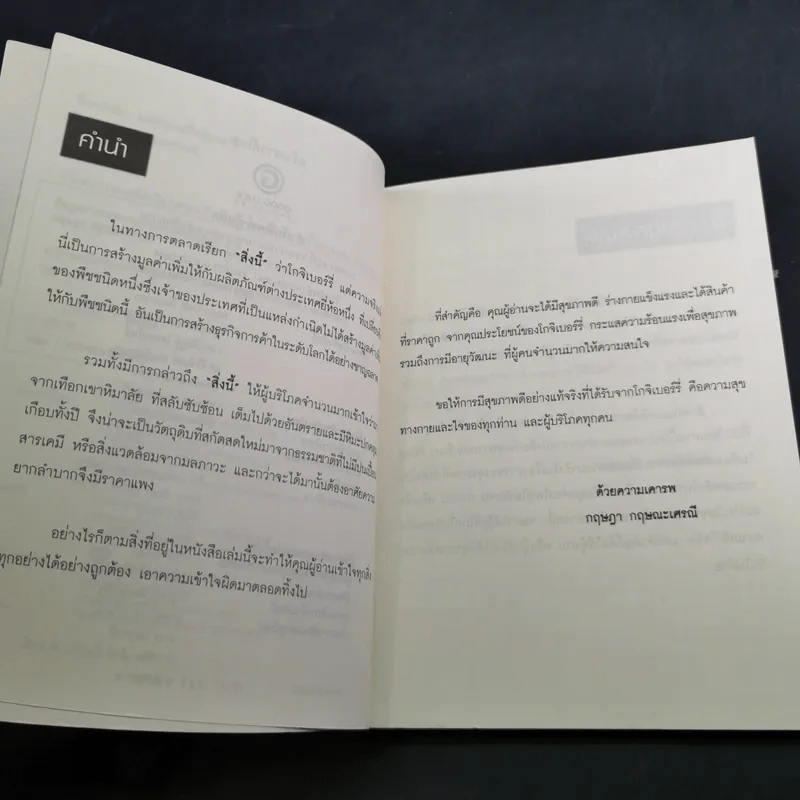 คำนำ
ในทางการตลาดเรียก "สิ่งนี้" ว่าโกจิเบอร์รี่ แต่ความจริงแล้ว
นี่เป็นการสร้างมูลค่าเพิ่มให้กับผลิตภัณฑ์ต่างประเทศยี่ห้อหนึ่ง
ของพืชชนิดหนึ่งซึ่งเจ้าของประเทศที่เป็นแหล่งกำเนิดไม่ได้สร้างมูลค่า
ให้กับพืชชนิดนี้ อันเป็นการสร้างธุรกิจการค้าในระดับโลกได้อย่างชาญฉลาด
รวมทั้งมีการกล่าวถึง "สิ่งนี้" ให้ผู้บริโภคจำนวนมากเข้าใจว่า
จากเทือกเขาหิมาลัย ที่สลับซับซ้อน เต็มไปด้วยอันตรายและมีหิมะปกคลุม
เกือบทั้งปี จึงน่าจะเป็นวัตถุดิบที่สกัดสดใหม่มาจากธรรมชาติที่ไม่มีปนเปื้อน
สารเคมี หรือสิ่งแวดล้อมจากมลภาวะ และกว่าจะได้มานั้นต้องอาศัยความ
ยากลำบากจึงมีราคาแพง
อย่างไรก็ตามสิ่งที่อยู่ในหนังสือเล่มนี้จะทำให้คุณผู้อ่านเข้าใจทุกสิ่ง
ทุกอย่างได้อย่างถูกต้อง เอาความเข้าใจผิดมาตลอดทิ้งไป
ที่สำคัญคือ คุณผู้อ่านจะได้มีสุขภาพดี ร่างกายแข็งแรงและได้สินค้า
ที่ราคาถูก จากคุณประโยชน์ของโกจิเบอร์รี่ กระแสความร้อนแรงเพื่อสุขภาพ
รวมถึงการมีอายุวัฒนะ ที่ผู้คนจำนวนมากให้ความสนใจ
ขอให้การมีสุขภาพดีอย่างแท้จริงที่ได้รับจากโกจิเบอร์รี่ คือความสุข
ทางกายและใจของทุกท่าน และผู้บริโภคทุกคน
ด้วยความเคารพ
กฤษฎา กฤษณะเศรณี